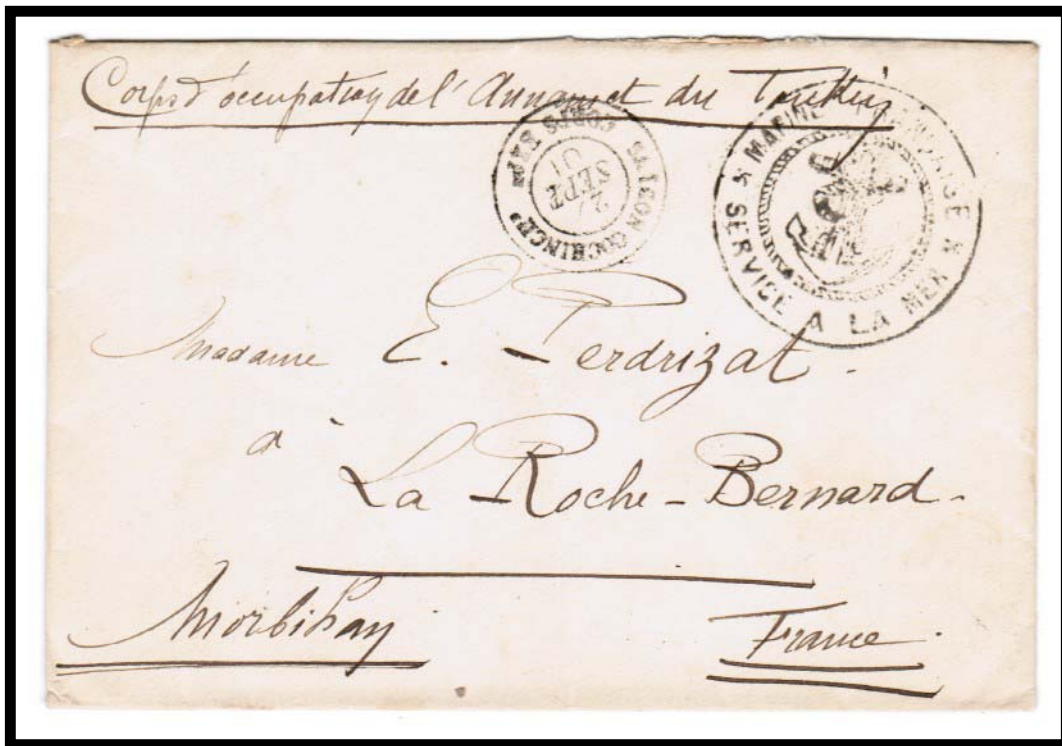 Corps d'occupation de l'Annam et du Tonkin
CORPS EXP. SAIGON COCHINCH.
2/ SEPT
MARINE FRANÇAISE
SERVICE A LA MER
Madame E. Perdrizat.
à
La Roche-Bernard.
Morbihan
France.